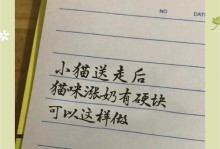 小猫送走后
猫咪涨奶有硬块
可以这样做